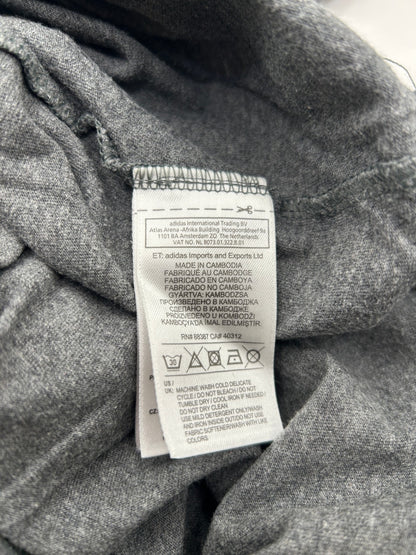 adidas International Trading BV
Atlas Arena -Afrika Building Hoogoorddreef 9a
1101 BA Amsterdam ZO The Netherlands
VAT NO. NL 8073.01.322.B.01
ET: adidas Imports and Exports Ltd
MADE IN CAMBODIA
FABRIQUÉ AU CAMBODGE
FABRICADO EN CAMBOYA
FABRICADO NO CAMBOJA
GYÁRTVA: KAMBODZSA
ПРОИЗВЕДЕНО В КАМБОДЖА
СДЕЛАНО В КАМБОДЖЕ
PROIZVEDENO U KOMBODŽI
KAMBOÇYA'DA İMAL EDİLMİŞTİR.
RN# 88387 CA# 40312
30
US /
UK: MACHINE WASH COLD DELICATE
CYCLE / DO NOT BLEACH / DO NOT
TUMBLE DRY / COOL IRON IF NEEDED /
DO NOT DRY CLEAN
USE MILD DETERGENT ONLY/WASH
AND IRON INSIDE OUT/DO NOT USE
FABRIC SOFTENER/WASH WITH LIKE
COLORS